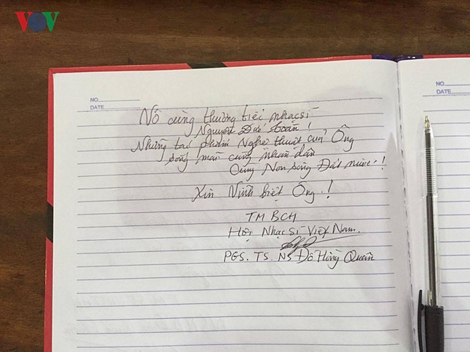 VOV
NO.
DATE
Vô cùng thương tiếc nhạc sĩ
Nguyễn Đức Toàn
Những tác phẩm Nghệ thuật của Ông
sống mãi cùng nhân dân
Cùng Non sông Đất nước!
Xin Vĩnh biệt Ông!
TM BCH
Hội Nhạc Sĩ Việt Nam.
PGS. TS. NS Đỗ Hồng Quân
NO.
DATE